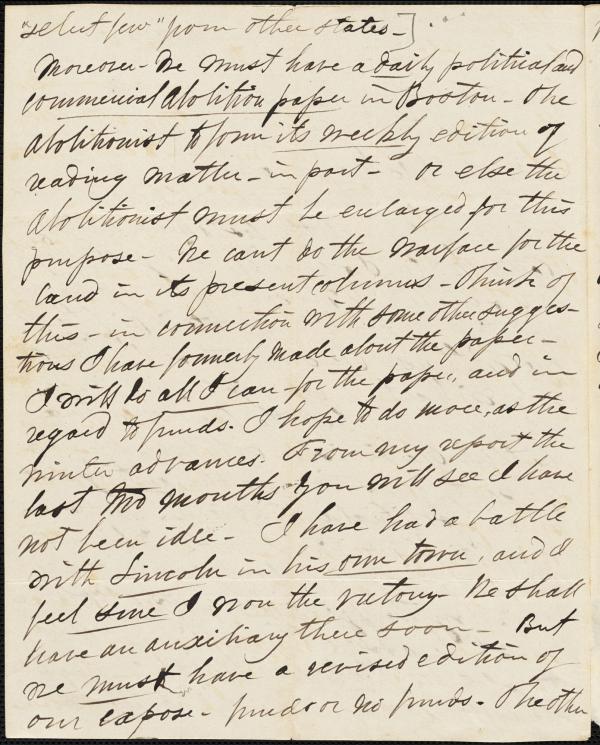 "select few" from other states-]
Moreover- We must have a daily political and
commercial Abolition paper in Boston- The
Abolitionist to form its weekly edition of
reading matter- in part- or else the
Abolitionist must be enlarged for this
purpose- We cant do the warfare for the
land in its present columns- Think of
this- in connection with some other sugges-
tions I have formerly made about the paper-
I will do all I can- for the paper, and in
regard to funds. I hope to do more, as the
winter advances. From my report the
last two months you will see I have
not been idle- I have had a battle
with Lincoln in his own town, and I
feel sure I won the victory- We shall
have an auxiliary there soon- But
we must have a revised edition of
our expose- funds or no funds- The other